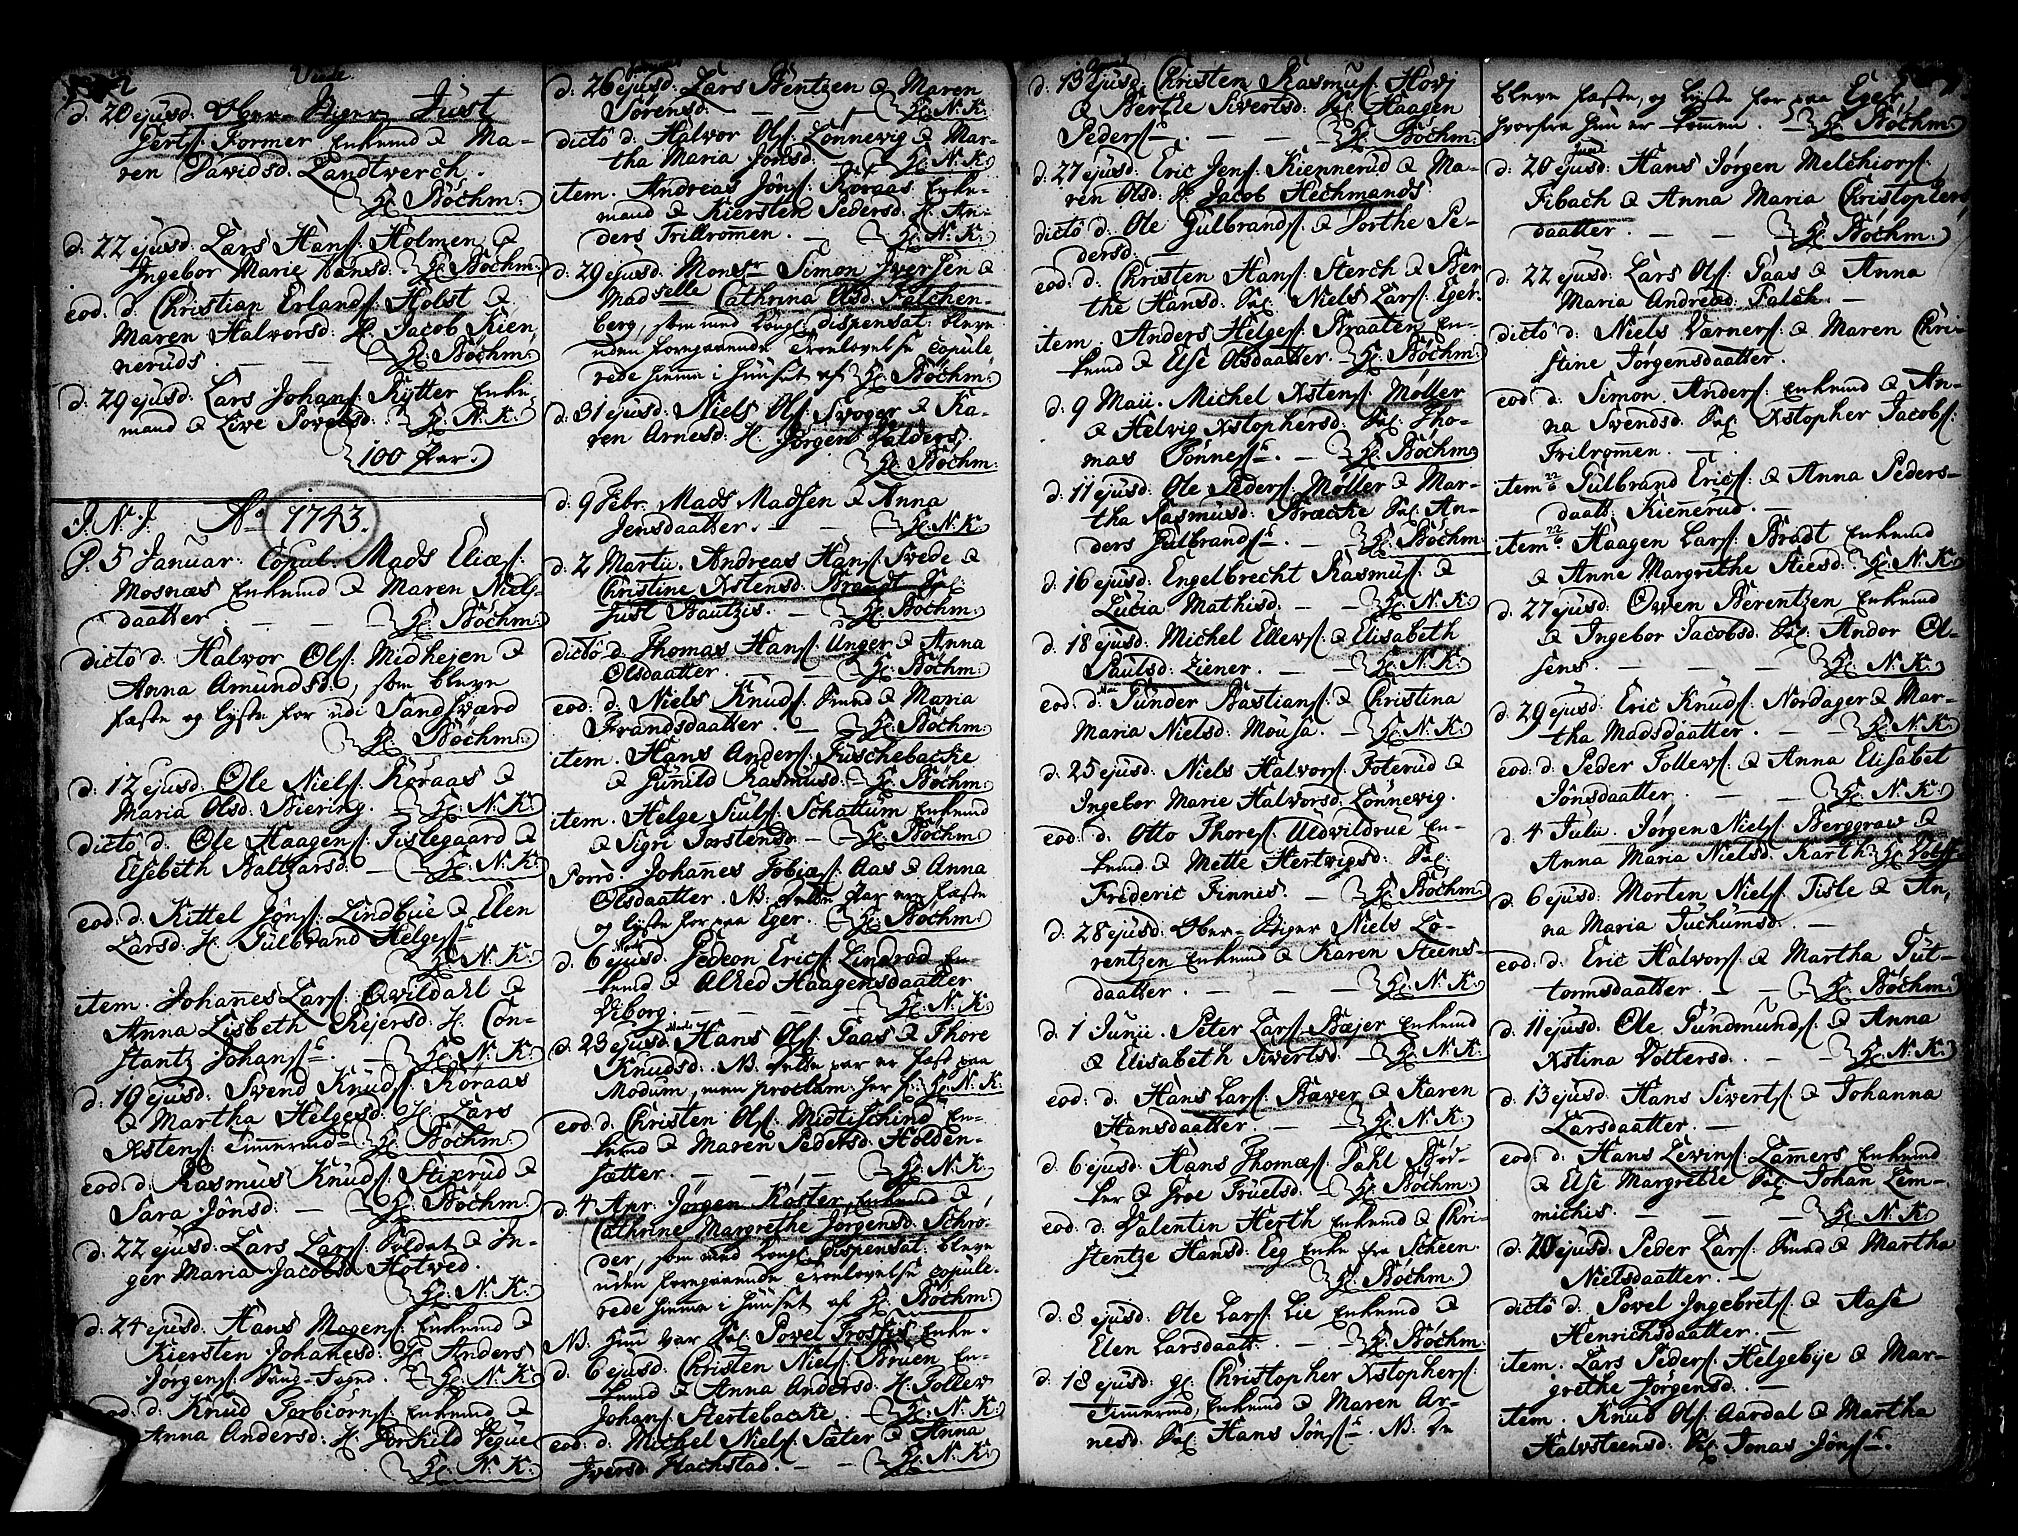 d. 20 ejusd. Ober-Stiger Just
Gertſ. Former Enkemd & Ma-
ren Davidsd. Landtverch.
H. Böchm.
d. 22 ejusd. Lars Hanſ. Holmen &
Ingebor Marie Hansd. H. Böchm.
eod. d. Christian Erlandſ. Holst &
Maren Halvorsd. H. Jacob Kien-
neruds. — H. Böchm.
d. 29 ejusd. Lars Johanſ. Rytter Enke-
mand & Live Povelsd. H. N. K.
100 Par.
J. N. J. Ao 1743.
d. 5 Januar. Copul. Mads Eliæſ.
Mosnæs Enkemd & Maren Niels-
daatter. — H. Böchm.
dicto d. Halvor Olſ. Midhejen &
Anna Amundsd., som bleve
fæste og lyste for udi Sandsværd
H. Böchm.
d. 12 ejusd. Ole Nielſ. Roraas &
Maria Olsd. Biering. H. N. K.
dicto d. Ole Haagenſ. Fislegaard &
Elsebeth Baltzarsd. — H. N. K.
eod. d. Kittel Jönſ. Lindbüe & Elen
Larsd. H. Gulbrand Helgeſ.
H. N. K.
item. Johannes Larſ. Qvildahl &
Anna Lisbeth Rejersd. H. Con-
stantz Johanſ. — H. N. K.
d. 19 ejusd. Svend Knudſ. Roraas
& Martha Helgesd. H. Lars
Xstenſ. Timmermd. H. Böchm.
eod. d. Rasmus Knudſ. Stixrud &
Sara Jönsd. — H. Böchm.
d. 22 ejusd. Lars Larſ. Soldat & In-
ger Maria Jacobsd. Hotved.
H. N. K.
d. 24 ejusd. Hans Mogenſ. Enkemd &
Kiersten Johanesd. H. Anders
Jörgenſ. H. N. K.
eod. d. Knud Torbiörnſ. Enkemd &
Anna Andersd. H. Torkild Vegue
H. N. K.
d. 26 ejusd. Lars Bentzen & Maren
Sörensd. — H. N. K.
dicto d. Halvor Olſ. Lonnevig & Mar-
tha Maria Jönsd. H. N. K.
item. Andreas Jönſ. Roraas Enke-
mand & Kiersten Pedersd. H. An-
ders Trillromen. — H. N. K.
d. 29 ejusd. Monsr Simon Iversen &
Madselle Cathrina Olsd. Falchen-
berg, som med Kongl. dispensat. bleve
uden foregaaende Troelovelse copule-
rede hiemme i Huuset af H. Böchm.
d. 31 ejusd. Niels Olſ. Svoger & Ka-
ren Arnesd. H. Jörgen Valders.
H. Böchm.
d. 9 Febr. Mads Madsen & Anna
Jensdaatter. — H. N. K.
d. 2 Martii. Andreas Hanſ. Svede &
Christine Xstensd. Brandt Sal.
Just Bautzis. — H. Böchm.
dicto d. Thomas Hanſ. Unger & Anna
Olsdaatter. — H. Böchm.
eod. d. Niels Knudſ. Smed & Maria
Frandsdaatter. — H. Böchm.
item. Hans Anderſ. Fuschebacke
& Gunild Rasmusd. H. Böchm.
item. Helge Siulſ. Schattum Enkemd
& Sigri Torstensd. — H. Böchm.
Porro. Johannes Tobiæſ. Aas & Anna
Olsdaatter. NB. dette Par ere fæste
og lyste for paa Eger. H. Böchm.
d. 6 ejusd. Gedeon Ericſ. Lindrod En-
kemd & Alhed Haagensdaatter
Viborg. — H. N. K.
d. 23 ejusd. Hans Olſ. Faas & Thore
Knudsd. NB. dette par er fæst paa
Modum, men proclam. her H. N. K.
eod. d. Christen Olſ. Midtischind En-
kemd & Maren Pedersd. Holden-
sætter. — H. N. K.
d. 4 Apr. Jörgen Köster Enkemd &
Cathrine Margrethe Jörgensd. Schrö-
der, som med Kongl. Dispensat. bleve
uden foregaaende Troelovelse copule-
rede hiemme i Huuset af H. Böchm.
NB. Hun var Sal. Povel Trostis Enke.
d. 6 ejusd. Christen Nielſ. Bruen En-
kemd & Anna Andersd. H. Tollev
Johanſ. Stertebacke. H. N. K.
eod. d. Michel Nielſ. Sæter & Anna
Iversd. Hachstad. — H. N. K.
d. 13 ejusd. Christen Rasmuſ. Hovj
& Berthe Sivertsd. Sal. Haagen
Pederſ. — H. Böchm.
d. 27 ejusd. Eric Jenſ. Kiennerud & Ma-
ren Olsd. H. Jacob Hechmands
dicto d. Ole Gulbrandſ. & Dorthe Pe-
dersd. —
eod. d. Christen Hanſ. Sterch & Ber
the Hansd. Sal. Niels Larſ. Eger.
item. Anders Helgeſ. Braaten En-
kemd & Else Olsdaatter. H. Böchm.
d. 9 Maii. Michel Xstenſ. Möller
& Helvig Xstophersd. Sal. Tho-
mas Tönneſ. — H. Böchm.
d. 11 ejusd. Ole Pederſ. Möller & Mar-
tha Rasmusd. Bræcke Sal. An-
ders Gulbrandſ. — H. Böchm.
d. 16 ejusd. Engelbrecht Rasmuſ. &
Lucia Mathisd. — H. N. K.
d. 18 ejusd. Michel Ellevſ. & Elisabeth
Paulsd. Ziener. — H. N. K.
eod. d. Gunder Bastianſ. & Christina
Maria Nielsd. Mousa. H. N. K.
d. 25 ejusd. Niels Halvorſ. Foterud &
Ingebor Marie Halvorsd. Lönnevig.
eod. d. Otto Thoreſ. Uldvildrue En-
kemd & Mette Hertvigsd. Sal.
Frideric Finnis. — H. Böchm.
d. 28 ejusd. Ober-Stiger Niels Lo-
rentzen Enkemd & Karen Steens
daatter. — H. N. K.
d. 1 Junii. Peter Larſ. Bæjer Enkemd
& Elisabeth Sivertsd. H. N. K.
eod. d. Hans Larſ. Bæver & Karen
Hansdaatter. — H. N. K.
d. 6 ejusd. Hans Thomæſ. Dahl Böd-
ker & Groe Truelsd. H. Böchm.
eod. d. Valentin Herth Enkemd & Chri-
stentze Hansd. Eeg Enke fra Scheen.
H. Böchm.
d. 8 ejusd. Ole Larſ. Lie Enkemd &
Elen Larsdaatt. — H. Böchm.
d. 18 ejusd. Christopher Xstopherſ.
Timmermd, Enkemd & Maren Ar-
nesd. Sal. Hans Jönſ. NB. De
bleve fæste, og lyste for paa Eger,
hvorfra hun er kommen. — H. Böchm.
d. 20 ejusd. Hans Jörgen Melchiorſ.
Fibach & Anna Maria Christophers
daatter. — H. Böchm.
d. 22 ejusd. Lars Olſ. Faas & Anna
Maria Andread. Falck. —
dicto d. Niels Værnerſ. & Maren Chri-
stine Jörgensdaatter.
eod. d. Simon Anderſ. Enkemd & An-
na Svendsd. Sal. Xstopher Jacobſ.
Trilromen. —
item. Gulbrand Ericſ. & Anna Peders-
daatt. Kiennerud. —
item. Haagen Larſ. Bradt Enkemd
& Anne Margrethe Steesd. H. N. K.
d. 27 ejusd. Owen Berentzen Enkemd
& Ingebor Jacobsd. Sal. Andor Ol-
sens. — H. N. K.
d. 29 ejusd. Eric Knudſ. Nordager & Mar-
tha Madsdaatter. — H. N. K.
eod. d. Peder Tollevſ. & Anna Elisabet
Jönsdaatter. — H. N. K.
d. 4 Julii. Jörgen Nielſ. Berggraw &
Anna Maria Nielsd. Karth.
d. 6 ejusd. Morten Nielſ. Tisle & An-
na Maria Juchumsd. —
eod. d. Eric Halvorſ. & Martha Gut-
tormsdaatter. — H. Böchm.
d. 11 ejusd. Ole Gundmundſ. & Anna
Xstina Voltersd. — H. N. K.
d. 13 ejusd. Hans Sivertſ. & Johanna
Larsdaatter. —
eod. d. Hans Levinſ. Lamers Enkemd
& Else Margrethe Sal. Johan Lem-
michis. — H. N. K.
d. 20 ejusd. Peder Larſ. Smed & Martha
Nielsdaatter. —
dicto d. Povel Ingebretſ. & Aase
Henrichsdaatter. —
item. Lars Pederſ. Helgebye & Mar-
grethe Jörgensd. —
item. Knud Olſ. Aardal & Martha
Halvsteensd. Sal. Jonas Jönſ.